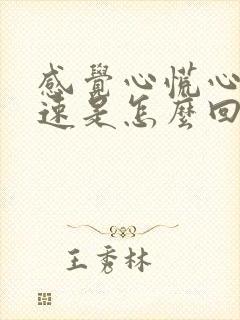 感覺心慌心
速是怎麼回
王秀林